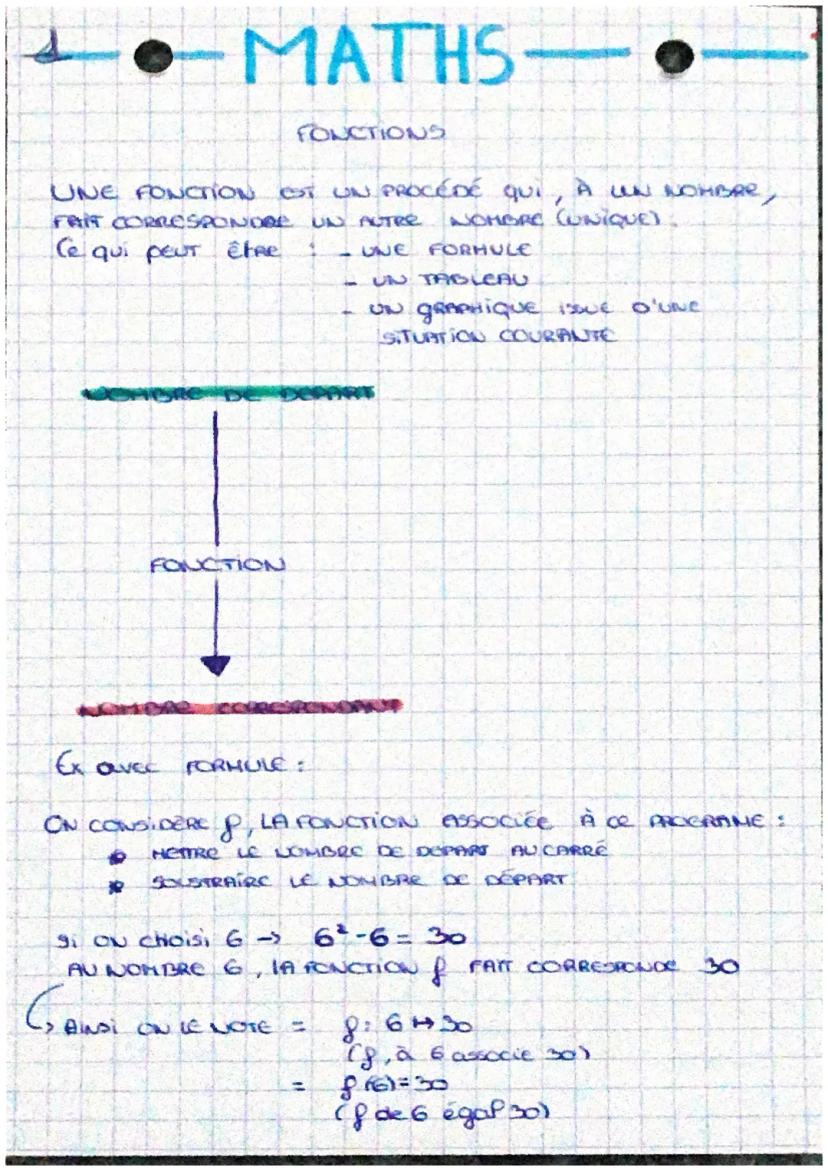 1 MATHS
FONCTIONS
UNE FONCTION EST UN PROCÉDÉ qui, À UN NOMBRE,
FAIT CORRESPONDRE UN AUTRE NOMBRE (UNIQUE).
Ce qui peut être : - UNE FORMULE
- UN TABLEAU
- UN GRAPHIQUE ISSUE D'UNE
SITUATION COURANTE
NOMBRE DE DEPART
FONCTION
NOMBRE CORRESPONDANT
Ex avec FORMULE :
ON CONSIDERE f, LA FONCTION ASSOCIÉE À CE PROGRAME :
METTRE LE NOMBRE DE DEPART AU CARRÉ
SOUSTRAIRE LE NOMBRE DE DÉPART
SI ON CHOISI 6 → 6² - 6 = 30
AU NOMBRE 6, LA FONCTION f FAIT CORRESPONDE 30
↳ AINSI ON LE NOTE = f : 6 ↦ 30
(f, à 6 associe 30)
= f(6) = 30
(f de 6 égal 30)